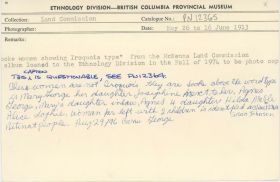 ETHNOLOGY DIVISION—BRITISH COLUMBIA PROVINCIAL MUSEUM
Collection: Land Commission Catalogue No.: PN 12365
Photographer: Date: May 26 to 16 June 1913
Remarks:
ooke women showing Iroquois type" from the McKenna Land Commission
album loaned to the Ethnology Division in the Fall of 1974 to be photo cop
CAPTION
THIS IS QUESTIONABLE, SEE PN12364.
These women are not Iroquois they are Sooke above the word type
is Mary George her daughter Josephine next to her, Agnes
George, Mary's daughter inlaw, Agnes 4 daughter Hilda
Alice daphne, woman far left with 2 children is identified as
Aug 29/96 George